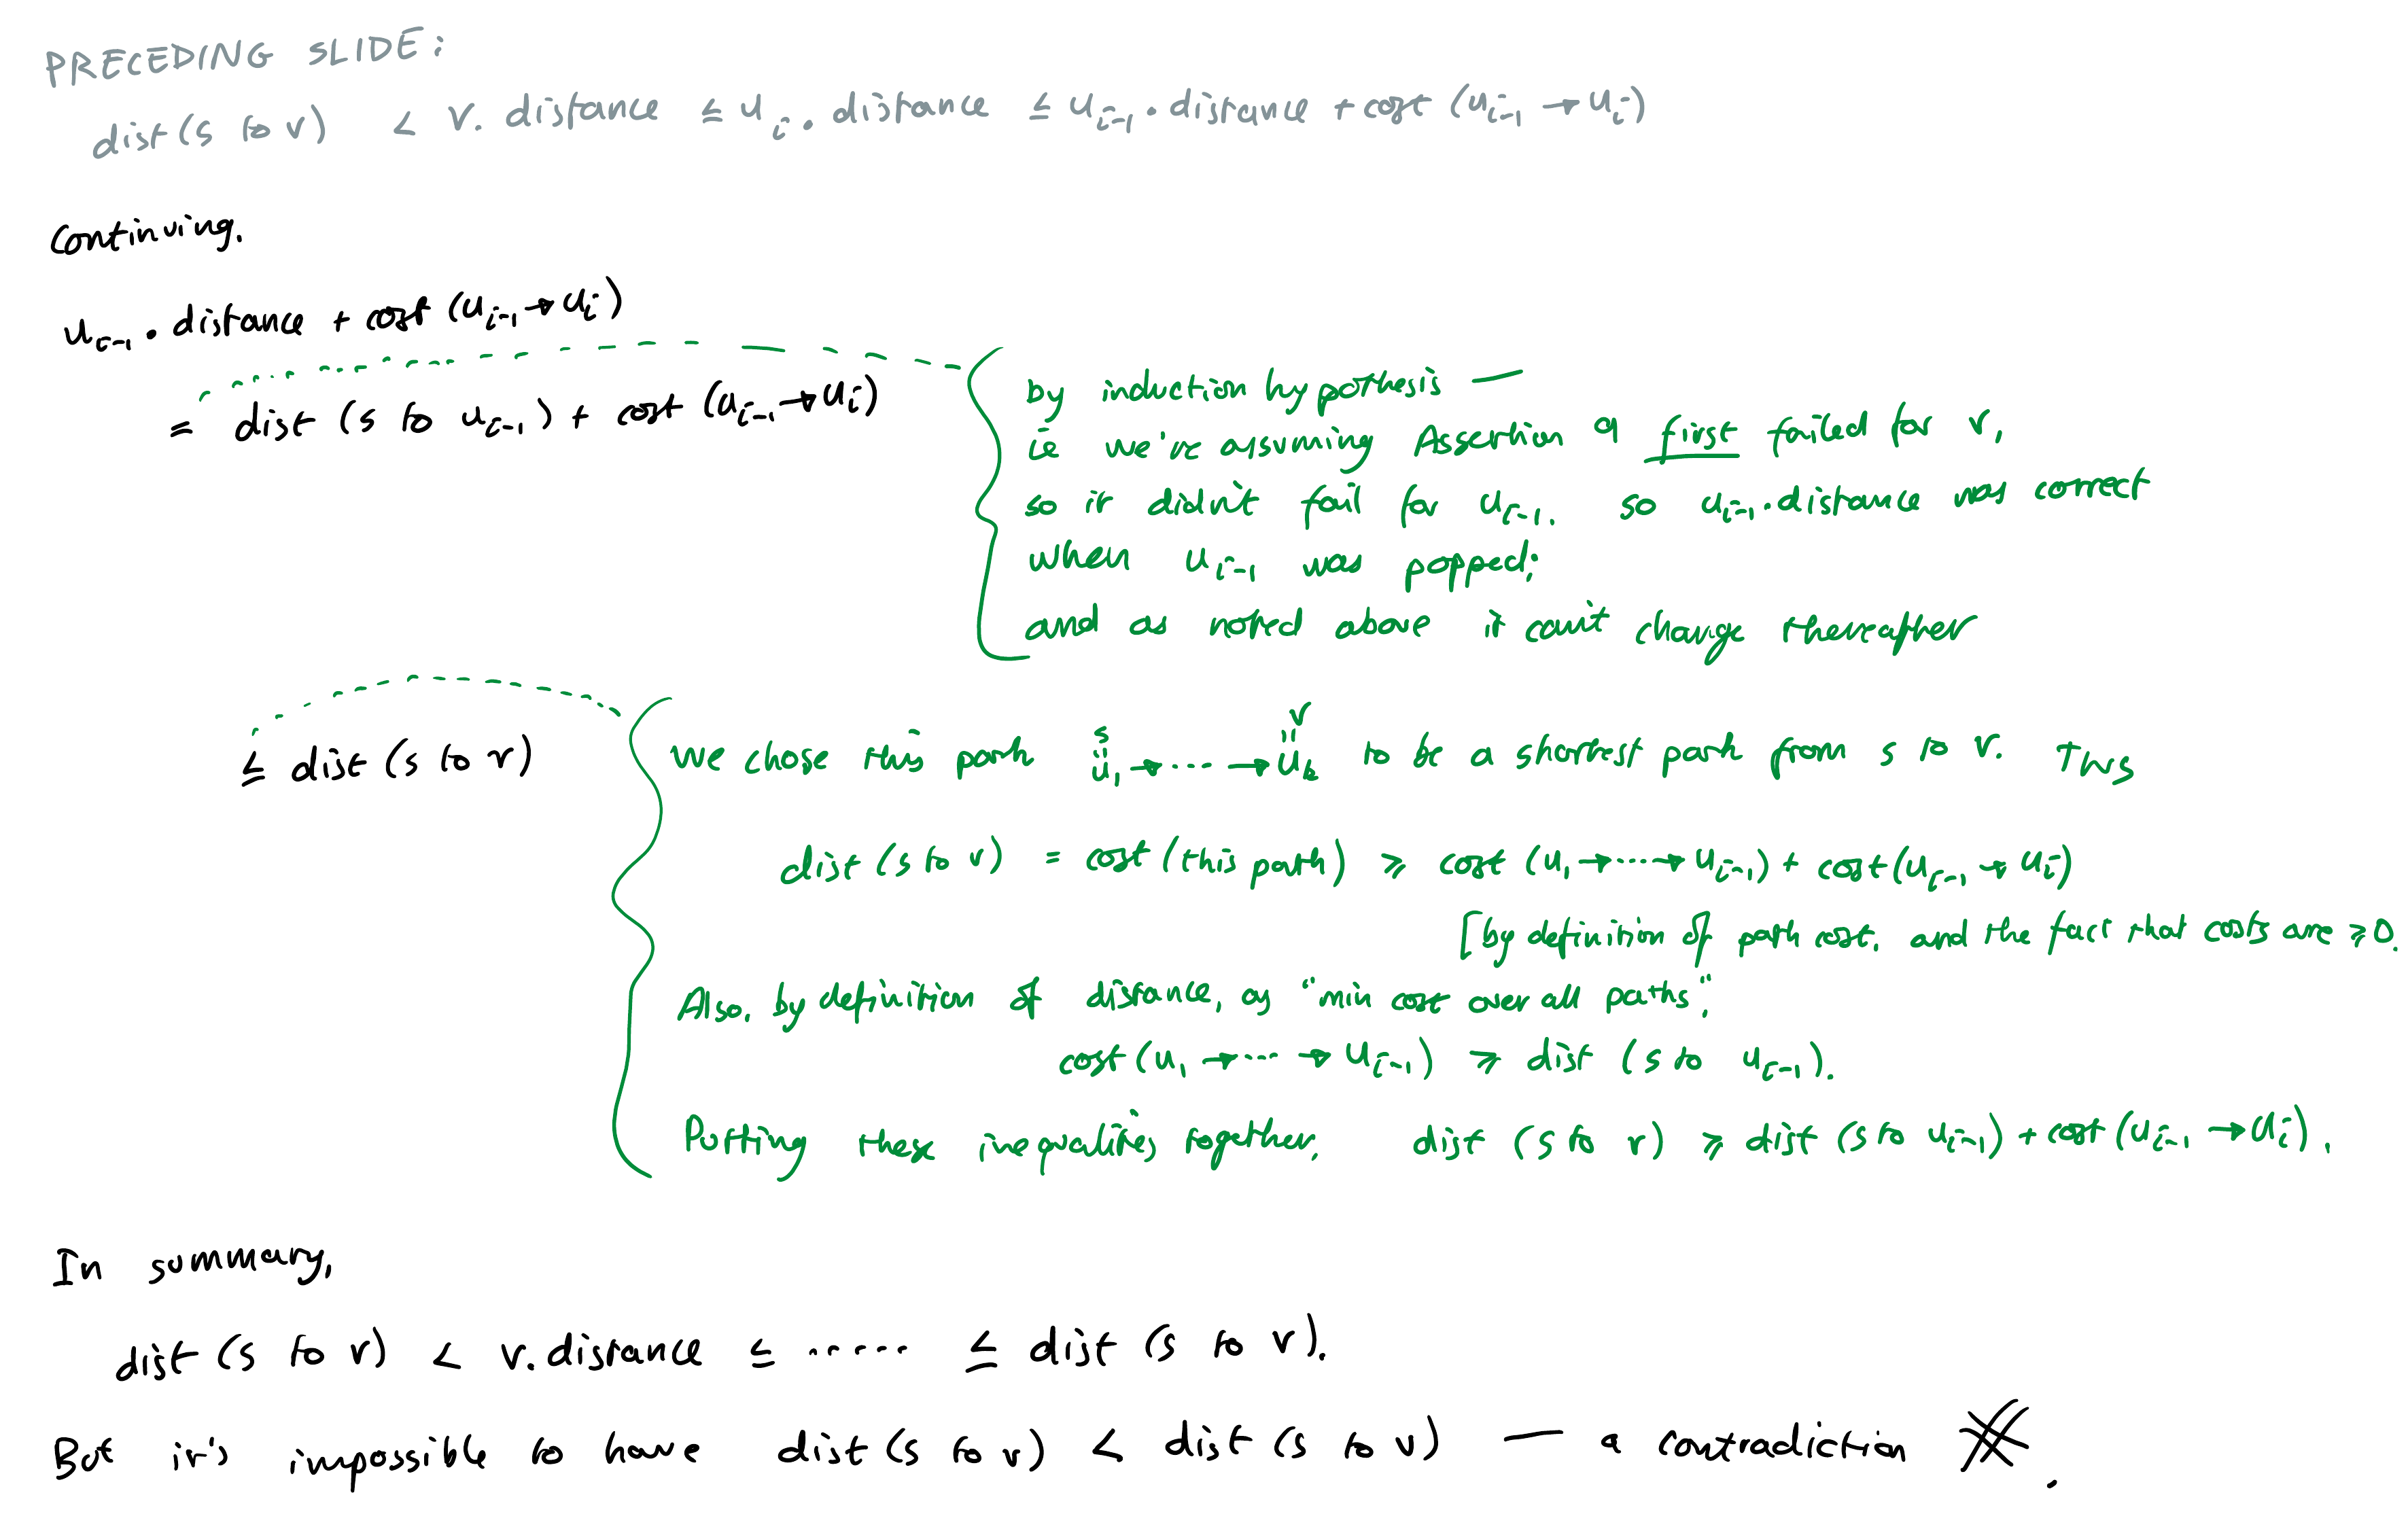 PRECEDING SLIDE:
dist(s to v) < v.distance ≤ u_i.distance ≤ u_{i-1}.distance + cost(u_{i-1} → u_i)
Continuing,
u_{i-1}.distance + cost(u_{i-1} → u_i)
= dist(s to u_{i-1}) + cost(u_{i-1} → u_i)
by induction hypothesis —
ie we're assuming Assertion 9 first failed for v,
so it didn't fail for u_{i-1}, so u_{i-1}.distance was correct
when u_{i-1} was popped;
and as noted above it can't change thereafter
≤ dist(s to v)
s v
We chose this path u_1 → ···· → u_k to be a shortest path from s to v. Thus
dist(s to v) = cost(this path) ≥ cost(u_1 → ···· → u_{i-1}) + cost(u_{i-1} → u_i)
[by definition of path cost, and the fact that costs are ≥0.
Also, by definition of distance, as "min cost over all paths",
cost(u_1 → ···· → u_{i-1}) ≥ dist(s to u_{i-1}).
Putting these inequalities together, dist(s to v) ≥ dist(s to u_{i-1}) + cost(u_{i-1} → u_i).
In summary,
dist(s to v) < v.distance ≤ ····· ≤ dist(s to v).
But it's impossible to have dist(s to v) < dist(s to v) — a contradiction ※.